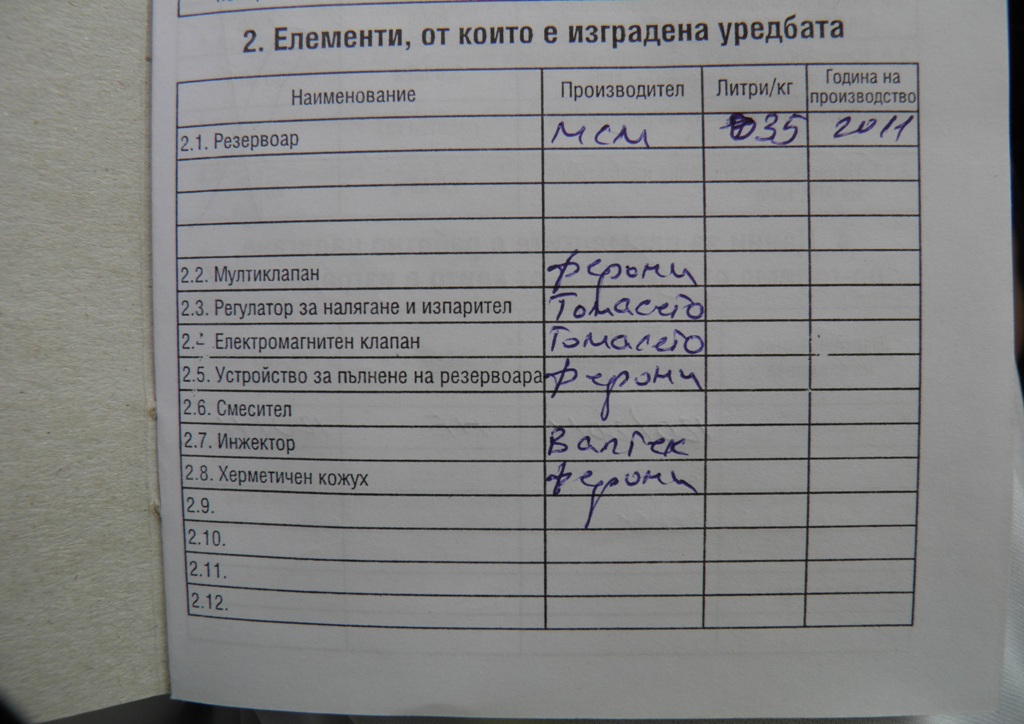 2. Елементи, от които е изградена уредбата
Наименование Производител Литри/кг Година на производство
2.1. Резервоар МСМ 35 2011
2.2. Мултиклапан Ферони
2.3. Регулатор за налягане и изпарител Томасето
2.4 Електромагнитен клапан Томасето
2.5. Устройство за пълнене на резервоара Ферони
2.6. Смесител
2.7. Инжектор Валтек
2.8. Херметичен кожух Ферони
2.9.
2.10.
2.11.
2.12.